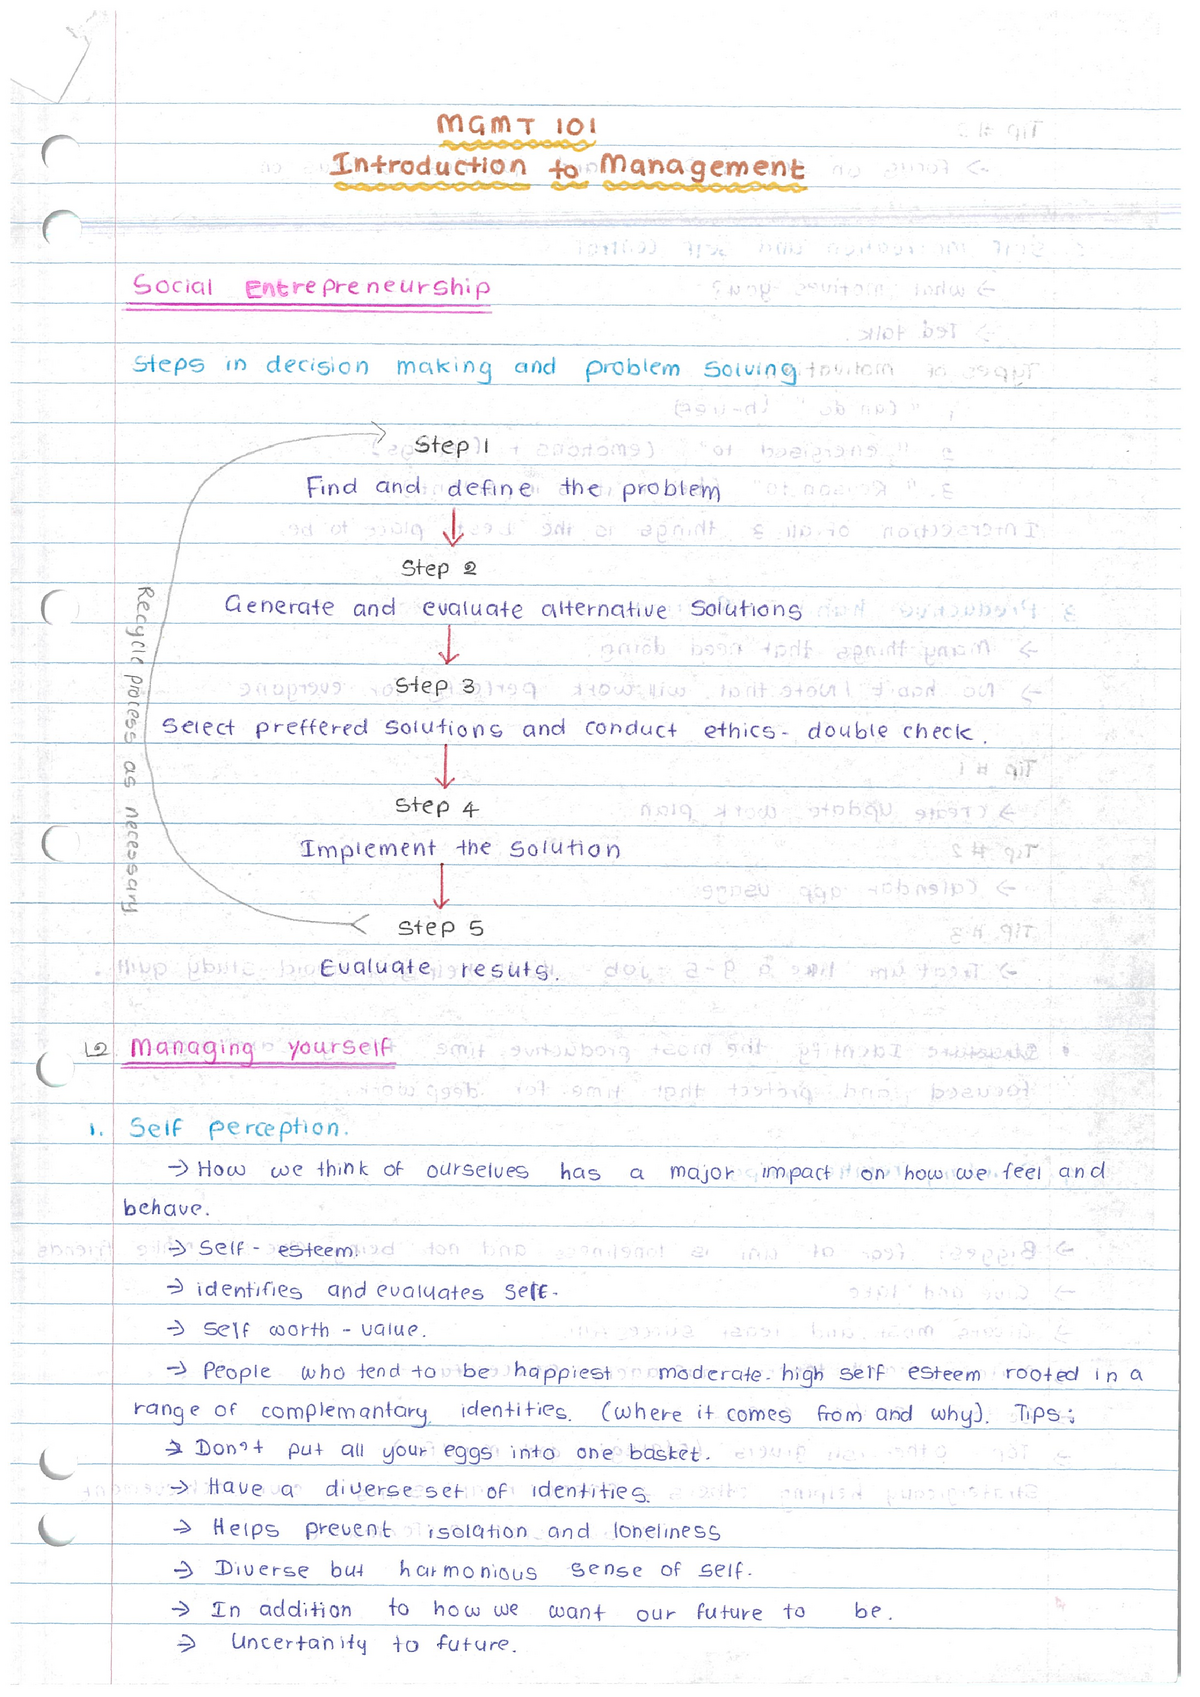 MGMT 101
Introduction to Management
Social Entrepreneurship
Steps in decision making and problem solving
Step 1
Find and define the problem
Step 2
Generate and evaluate alternative solutions
Step 3
Select preffered solutions and conduct ethics - double check.
Step 4
Implement the solution
Step 5
Evaluate resuts.
Recycle process as necessary
L2 Managing yourself
1. Self perception.
→ How we think of ourselves has a major impact on how we feel and
behave.
→ Self - esteem.
→ identifies and evaluates self.
→ Self worth - value.
→ People who tend to be happiest moderate - high self esteem rooted in a
range of complemantary identities. (where it comes from and why). Tips:
→ Don't put all your eggs into one basket.
→ Have a diverse set of identities.
→ Helps prevent isolation and loneliness
→ Diverse but harmonious sense of self.
→ In addition to how we want our future to be.
→ Uncertanity to future.